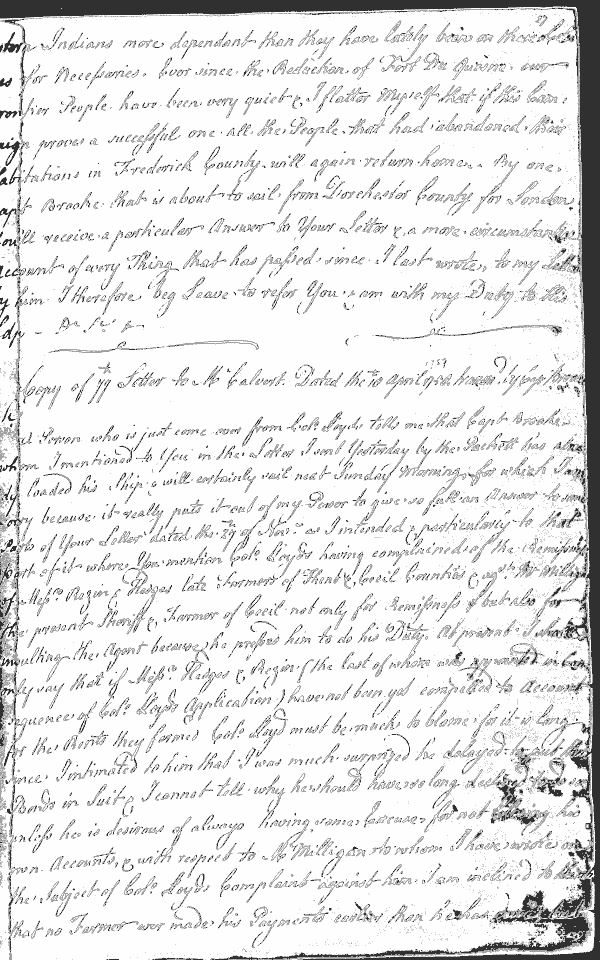 Indians more dependant than they have lately been on these
for Necessaries. Ever since the Reduction of Fort Du Quisne our
People have been very quiet & I flatter Myself that if this Cam:
proves a successful one all the People that had abandoned their
habitations in Frederick County will again return home. By one
Brooke that is about to sail from Dorchester County for London
receive a particular Answer to Your Letter & a more circumstantial
Account of every Thing that has passed since I last wrote, to my Letter
him I therefore beg Leave to refer You & am with my Duty to His
Copy of Letter to Mr Calvert. Dated the 10 April
Person who is just come over from Colo. Lloyds tells me that Capt Brooke
whom I mentioned to You in the Letter I sent Yesterday by the Packett has
loaded his Ship & will certainly sail next Sunday Morning, for which I am
sorry because it really puts it out of my Power to give so full an Answer to some
Parts of Your Letter dated the 29 of Novr. as I intended & particularly to that
part of it where You mention Colo. Lloyds having complained of the Remissness
of Messrs. Regin & Hedges late Farmers of Kent & Cecil Counties & agst. Mr Milligan
the present Sheriff & Farmer of Cecil not only for Remissness but also for
insulting the Agent because he presses him to do his Duty. At present I shall
only say that if Messrs. Hedges & Regin (the last of whom was appointed in Con
sequence of Colo. Lloyds Application) have not been yet compelled to Account
for the Rents they farmed Colo. Lloyd must be much to blame for it is long
since I intimated to him that I was much surprized he delayed to put their
Bonds in Suit & I cannot tell why he should have so long
unless he is desirous of always having some Excuse for not his
own Accounts, & with respect to Mr Milligan to whom I have wrote on
the Subject of Colo. Lloyds Complaint against him I am inclined to
that no Farmer ever made his Payments earlier than he has